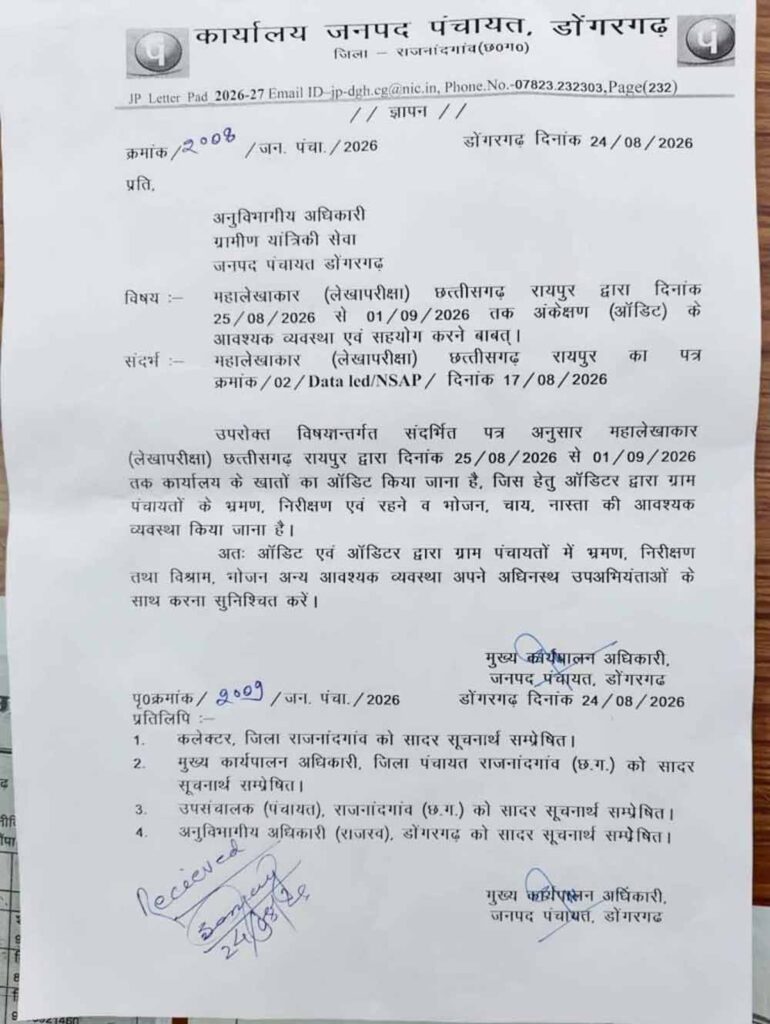 कार्यालय जनपद पंचायत, डोंगरगढ़
जिला – राजनांदगांव(छ०ग०)
JP Letter Pad 2026-27 Email ID–jp-dgh.cg@nic.in, Phone.No.-07823.232303,Page(232)
// ज्ञापन //
क्रमांक/2008 /जन. पंचा./2026 डोंगरगढ़ दिनांक 24/08/2026
प्रति,
अनुविभागीय अधिकारी
ग्रामीण यांत्रिकी सेवा
जनपद पंचायत डोंगरगढ़
विषय :– महालेखाकार (लेखापरीक्षा) छत्तीसगढ़ रायपुर द्वारा दिनांक
25/08/2026 से 01/09/2026 तक अंकेक्षण (ऑडिट) के
आवश्यक व्यवस्था एवं सहयोग करने बाबत्।
संदर्भ :– महालेखाकार (लेखापरीक्षा) छत्तीसगढ़ रायपुर का पत्र
क्रमांक/02/Data led/NSAP/ दिनांक 17/08/2026
उपरोक्त विषयान्तर्गत संदर्भित पत्र अनुसार महालेखाकार
(लेखापरीक्षा) छत्तीसगढ़ रायपुर द्वारा दिनांक 25/08/2026 से 01/09/2026
तक कार्यालय के खातों का ऑडिट किया जाना है, जिस हेतु ऑडिटर द्वारा ग्राम
पंचायतों के भ्रमण, निरीक्षण एवं रहने व भोजन, चाय, नास्ता की आवश्यक
व्यवस्था किया जाना है।
अतः ऑडिट एवं ऑडिटर द्वारा ग्राम पंचायतों में भ्रमण, निरीक्षण
तथा विश्राम, भोजन अन्य आवश्यक व्यवस्था अपने अधिनस्थ उपअभियंताओं के
साथ करना सुनिश्चित करें।
मुख्य कार्यपालन अधिकारी,
जनपद पंचायत, डोंगरगढ
पृ0क्रमांक/ 2009 /जन. पंचा./2026 डोंगरगढ़ दिनांक 24/08/2026
प्रतिलिपि :–
1. कलेक्टर, जिला राजनांदगांव को सादर सूचनार्थ सम्प्रेषित।
2. मुख्य कार्यपालन अधिकारी, जिला पंचायत राजनांदगांव (छ.ग.) को सादर
सूचनार्थ सम्प्रेषित।
3. उपसंचालक (पंचायत), राजनांदगांव (छ.ग.) को सादर सूचनार्थ सम्प्रेषित।
4. अनुविभागीय अधिकारी (राजस्व), डोंगरगढ़ को सादर सूचनार्थ सम्प्रेषित।
Recieved
24/08/26
मुख्य कार्यपालन अधिकारी,
जनपद पंचायत, डोंगरगढ